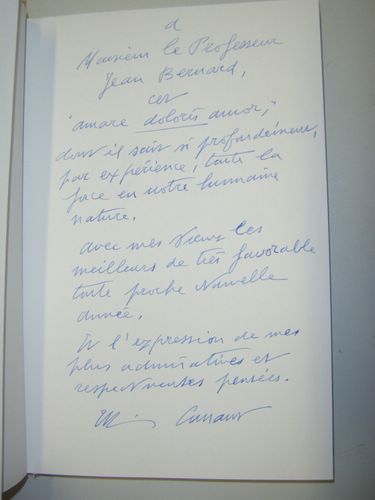 à
Monsieur le Professeur
Jean Bernard,
cet
"amare doloris amor",
dont il sait si profondément,
par expérience, toute la
face en notre humaine
nature.
avec mes vœux les
meilleurs de très favorable
toute proche Nouvelle
Année,
Et l'expression de mes
plus admiratives et
respectueuses pensées.